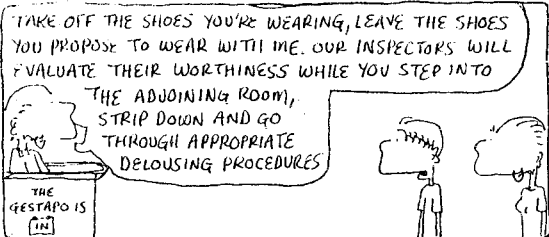 TAKE OFF THE SHOES YOU'RE WEARING, LEAVE THE SHOES
YOU PROPOSE TO WEAR WITH ME. OUR INSPECTORS WILL
EVALUATE THEIR WORTHINESS WHILE YOU STEP INTO
THE ADJOINING ROOM,
STRIP DOWN AND GO
THROUGH APPROPRIATE
DELOUSING PROCEDURES
THE
GESTAPO IS
IN